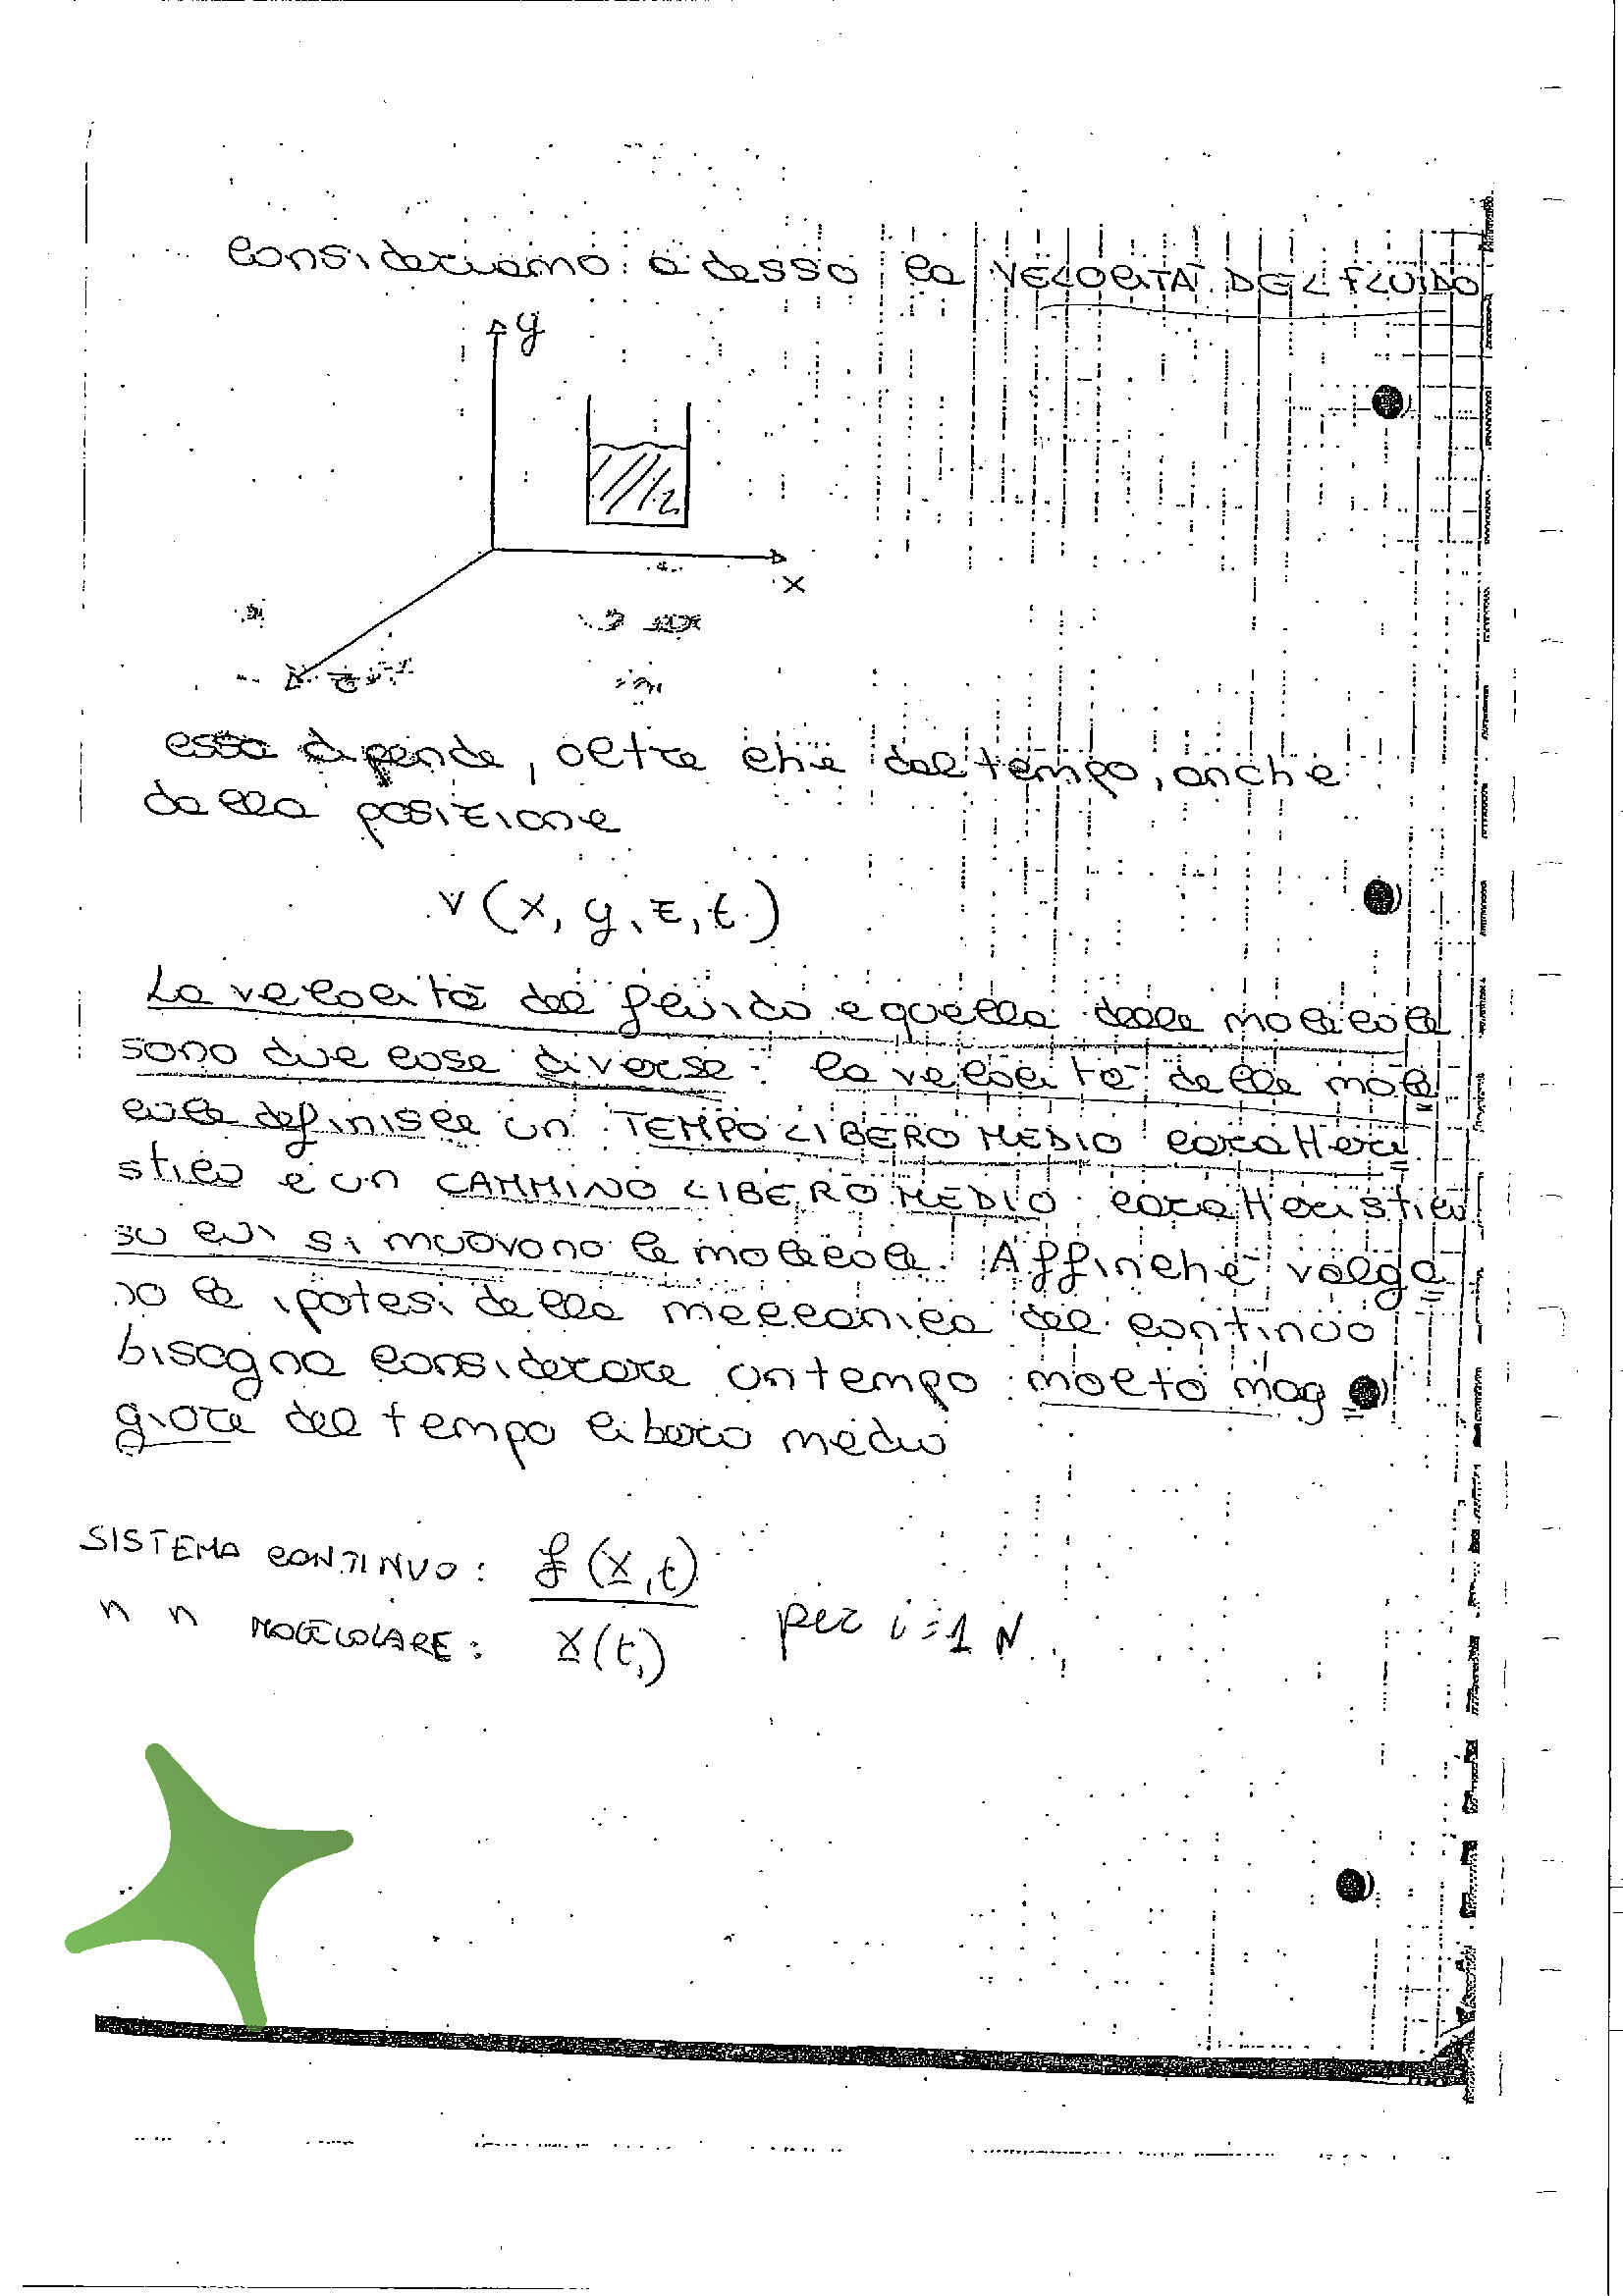 Consideriamo adesso la VELOCITA' DEL FLUIDO
y
x
z
essa dipende, oltre che dal tempo, anche
dalla posizione
v (x, y, z, t)
La velocità del fluido e quella delle molecole
sono due cose diverse: la velocità delle mole
cole definisce un TEMPO LIBERO MEDIO caratteri
stico e un CAMMINO LIBERO MEDIO caratteristico
su cui si muovono le molecole. Affinché valga
no le ipotesi della meccanica del continuo
bisogna considerare un tempo molto mag
giore del tempo libero medio
SISTEMA CONTINUO: f (x, t)
" " MOLECOLARE: x(t) per i=1 N